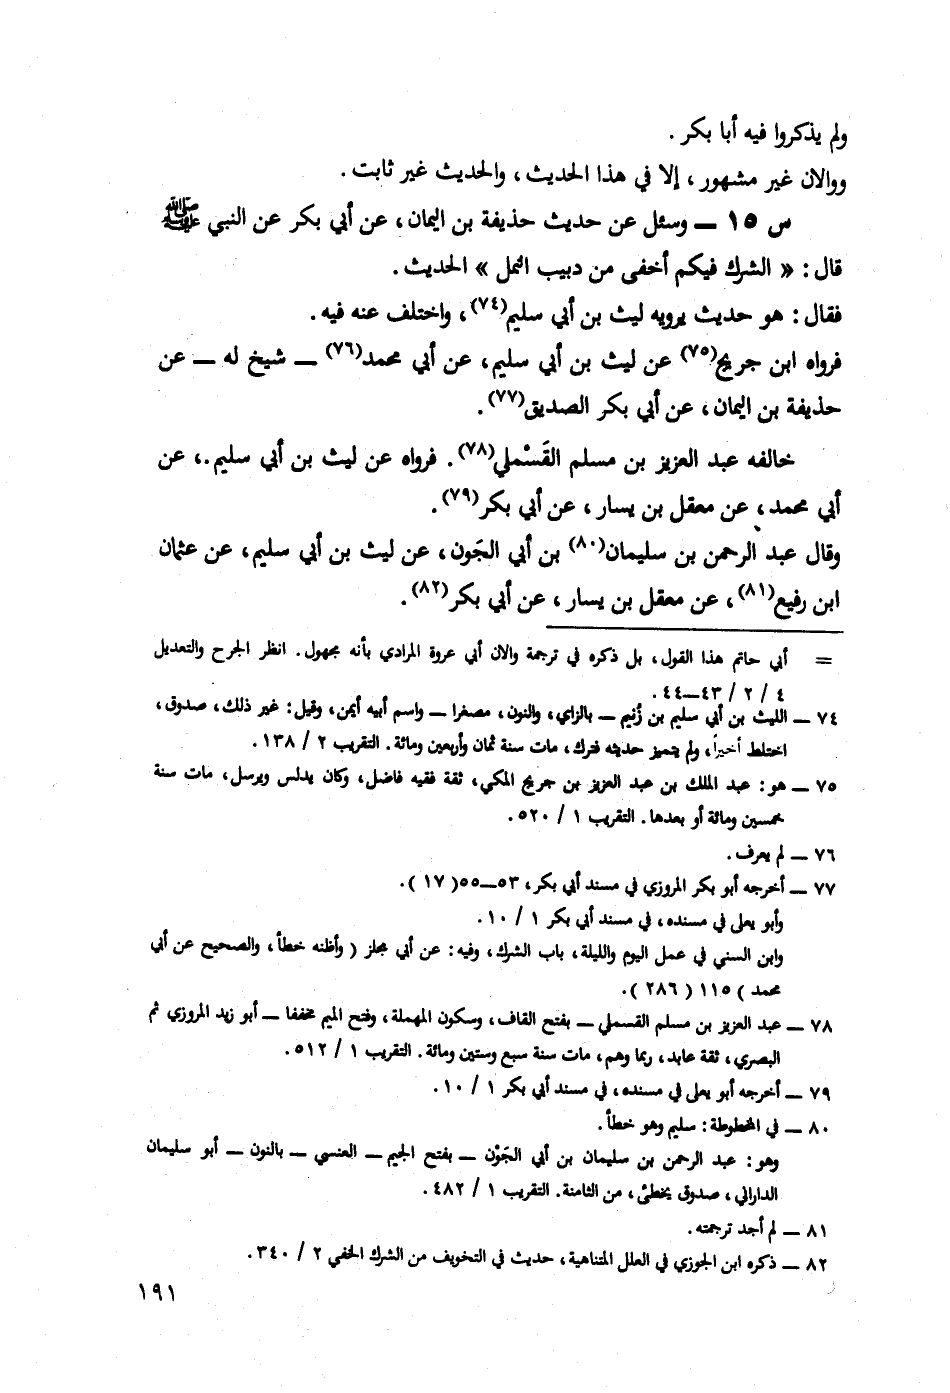 ولم يذكروا فيه أبا بكر .
ووالان غير مشهور ، إلا في هذا الحديث ، والحديث غير ثابت .
س ١٥ — وسئل عن حديث حذيفة بن اليمان ، عن أبي بكر عن النبي ﷺ
قال : « الشرك فيكم أخفى من دبيب النمل » الحديث .
فقال : هو حديث يرويه ليث بن أبي سليم(٧٤) ، واختلف عنه فيه .
فرواه ابن جريج(٧٥) عن ليث بن أبي سليم ، عن أبي محمد(٧٦) — شيخ له — عن
حذيفة بن اليمان ، عن أبي بكر الصديق(٧٧) .
خالفه عبد العزيز بن مسلم القَسْملي(٧٨) . فرواه عن ليث بن أبي سليم .، عن
أبي محمد ، عن معقل بن يسار ، عن أبي بكر(٧٩) .
وقال عبد الرحمن بن سليمان(٨٠) بن أبي الجَون ، عن ليث بن أبي سليم ، عن عثمان
ابن رفيع(٨١) ، عن معقل بن يسار ، عن أبي بكر(٨٢) .
= أبي حاتم هذا القول ، بل ذكره في ترجمة والان أبي عروة المرادي بأنه مجهول . انظر الجرح والتعديل
٤ / ٢ / ٤٣—٤٤ .
٧٤ — الليث بن أبي سليم بن زُنيم — بالزاي ، والنون ، مصغرا — واسم أبيه أيمن ، وقيل : غير ذلك ، صدوق ،
اختلط أخيراً ، ولم يتميز حديثه فترك ، مات سنة ثمان وأربعين ومائة . التقريب ٢ / ١٣٨ .
٧٥ — هو : عبد الملك بن عبد العزيز بن جريج المكي ، ثقة فقيه فاضل ، وكان يدلس ويرسل ، مات سنة
خمسين ومائة أو بعدها . التقريب ١ / ٥٢٠ .
٧٦ — لم يعرف .
٧٧ — أخرجه أبو بكر المروزي في مسند أبي بكر ، ٥٣—٥٥( ١٧ ) .
وأبو يعلى في مسنده ، في مسند أبي بكر ١ / ١٠ .
وابن السني في عمل اليوم والليلة ، باب الشرك ، وفيه : عن أبي مجلز ( وأظنه خطأ ، والصحيح عن أبي
محمد ) ١١٥ ( ٢٨٦ ) .
٧٨ — عبد العزيز بن مسلم القسملي — بفتح القاف ، وسكون المهملة ، وفتح الميم مخففا — أبو زيد المروزي ثم
البصري ، ثقة عابد ، ربما وهم ، مات سنة سبع وستين ومائة . التقريب ١ / ٥١٢ .
٧٩ — أخرجه أبو يعلى في مسنده ، في مسند أبي بكر ١ / ١٠ .
٨٠ — في المخطوطة : سليم وهو خطأ .
وهو : عبد الرحمن بن سليمان بن أبي الجَوْن — بفتح الجيم — العنسي — بالنون — أبو سليمان
الداراني ، صدوق يخطئ ، من الثامنة . التقريب ١ / ٤٨٢ .
٨١ — لم أجد ترجمته .
٨٢ — ذكره ابن الجوزي في العلل المتناهية ، حديث في التخويف من الشرك الخفي ٢ / ٣٤٠ .
١٩١